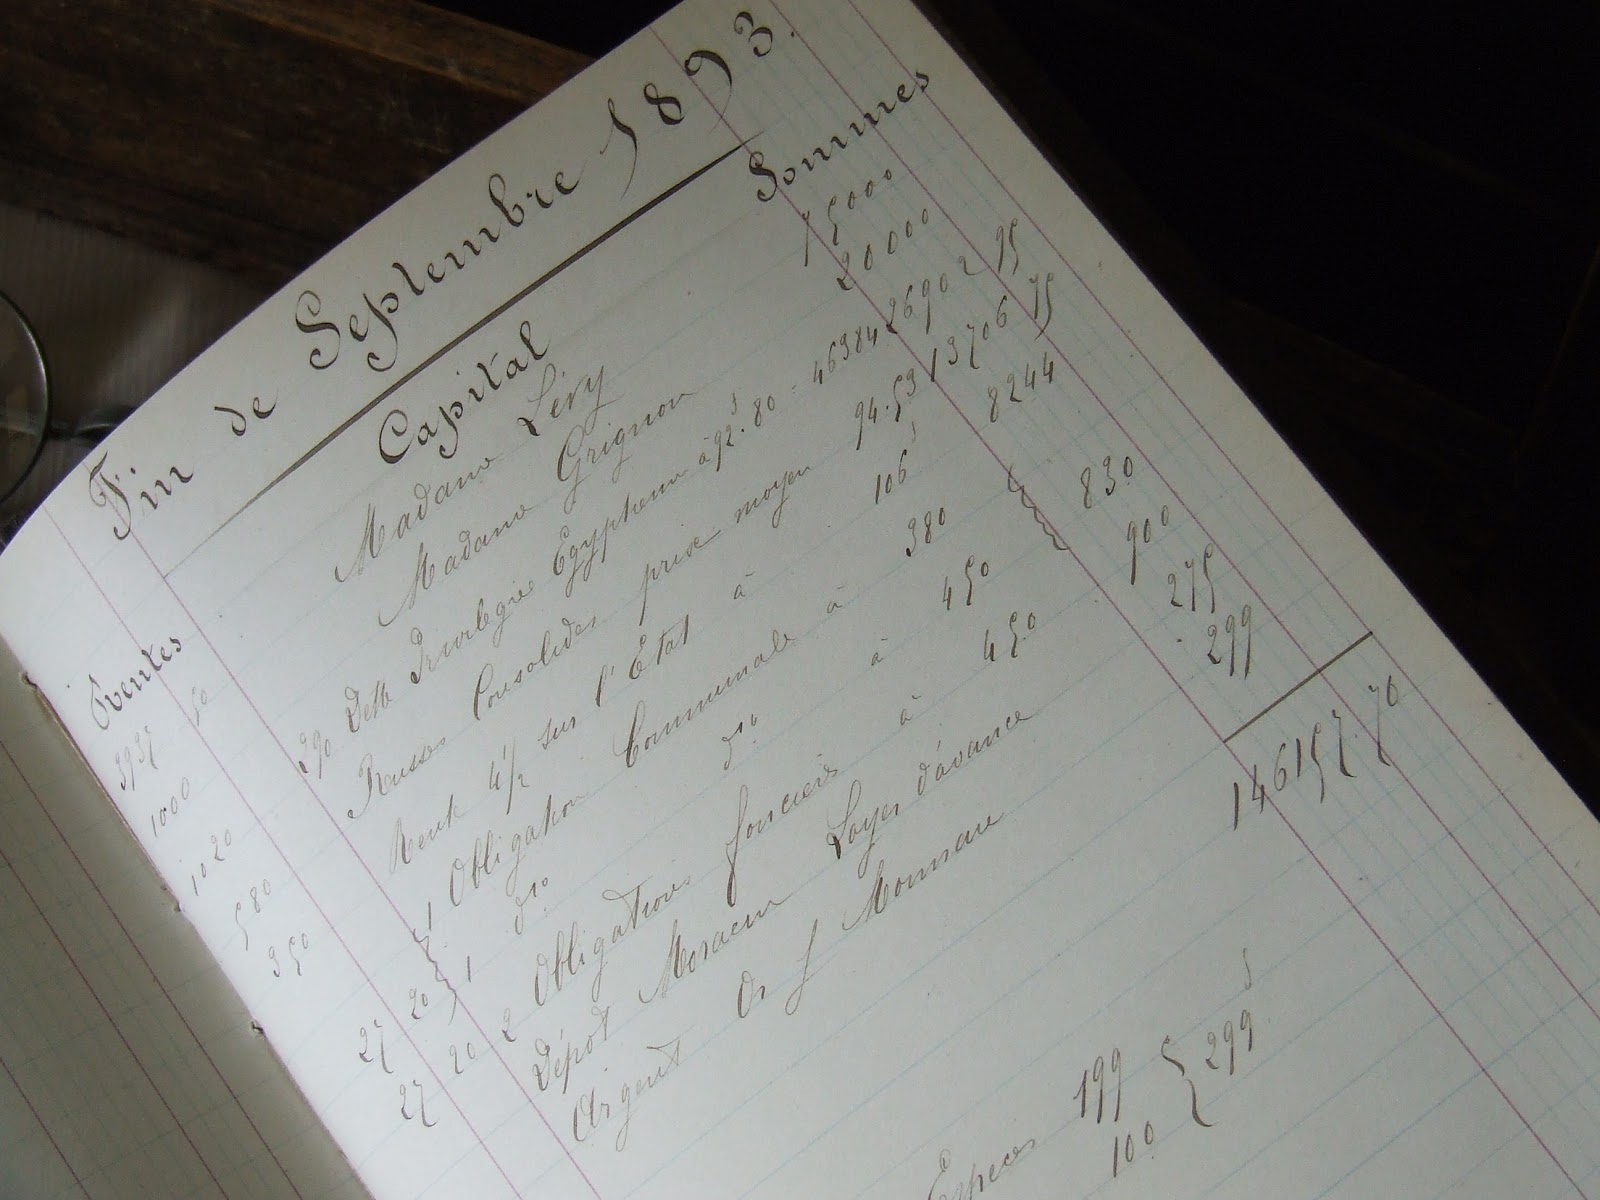 Fin de Septembre 1893.
Rentes Capital Sommes
3937 50 Madame Lévy 75000
1000 Madame Grignon 20000
1020 Dette Privilegiée Egyptienne à 92.80 = 46384
580 Russes Consolidés prix moyen 94.53 13706 75
350 Rente 4 1/2 sur l'Etat à 106 8244
27 20 1 Obligation Communale à 380
1 do do à 450 830
27 20 2 Obligations foncieres à 450 900
Dépôt Loyer d'avance 275
Argent Or & Monnaie 299
146157 70
Especes 199
100 299